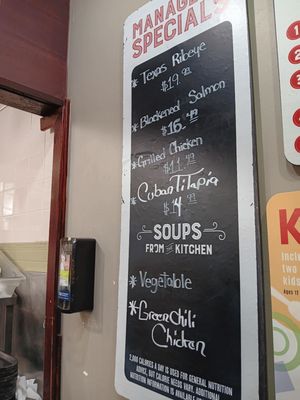 MANAGER
SPECIALS
* Texas Ribeye
$19.99
* Blackened Salmon
$16.49
* Grilled Chicken
$11.49
* Cuban Tilapia
SOUPS
FROM THE KITCHEN
* Vegetable
* Green Chili
Chicken
2,000 CALORIES A DAY IS USED FOR GENERAL NUTRITION
ADVICE, BUT CALORIE NEEDS VARY. ADDITIONAL
NUTRITION INFORMATION IS AVAILABLE
K
Inclu
two
kids
Ages 12